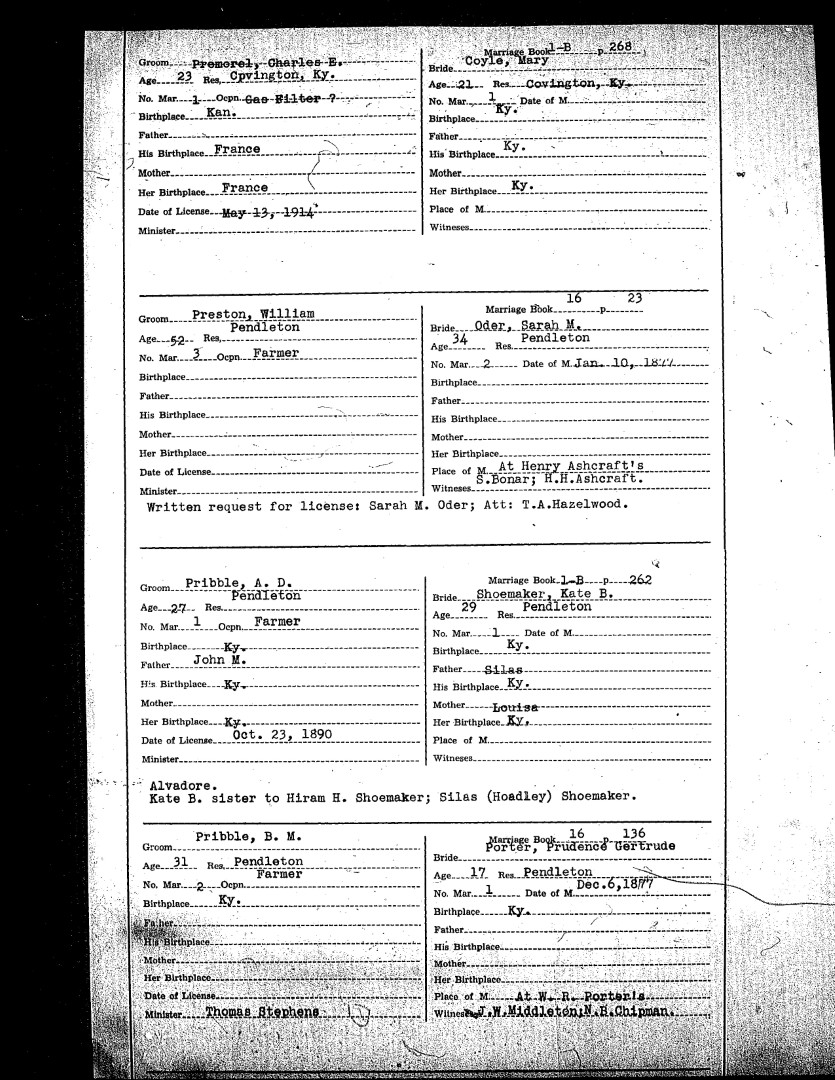 Marriage Book 1-B p. 268
Groom Premorel, Charles E.
Bride Coyle, Mary
Age 23 Res. Covington, Ky.
Age 21 Res. Covington, Ky.
No. Mar. 1 Ocpn. Gas Filter ?
No. Mar. 1 Date of M.
Birthplace Kan.
Birthplace Ky.
Father
Father
His Birthplace France
His Birthplace Ky.
Mother
Mother
Her Birthplace France
Her Birthplace Ky.
Date of License May 13, 1914
Place of M.
Minister
Witnesses
Marriage Book 16 p. 23
Groom Preston, William
Bride Oder, Sarah M.
Age 52 Res. Pendleton
Age 34 Res. Pendleton
No. Mar. 3 Ocpn. Farmer
No. Mar. 2 Date of M. Jan. 10, 1877
Birthplace
Birthplace
Father
Father
His Birthplace
His Birthplace
Mother
Mother
Her Birthplace
Her Birthplace
Date of License
Place of M. At Henry Ashcraft's
Minister
Witnesses S.Bonar; H.H.Ashcraft.
Written request for license: Sarah M. Oder; Att: T.A.Hazelwood.
Marriage Book 1-B p. 262
Groom Pribble, A. D.
Bride Shoemaker, Kate B.
Age 27 Res. Pendleton
Age 29 Res. Pendleton
No. Mar. 1 Ocpn. Farmer
No. Mar. 1 Date of M.
Birthplace Ky.
Birthplace Ky.
Father John M.
Father Silas
His Birthplace Ky.
His Birthplace Ky.
Mother
Mother Louisa
Her Birthplace Ky.
Her Birthplace Ky.
Date of License Oct. 23, 1890
Place of M.
Minister
Witnesses
Alvadore.
Kate B. sister to Hiram H. Shoemaker; Silas (Hoadley) Shoemaker.
Marriage Book 16 p. 136
Groom Pribble, B. M.
Bride Porter, Prudence Gertrude
Age 31 Res. Pendleton
Age 17 Res. Pendleton
No. Mar. 2 Ocpn. Farmer
No. Mar. 1 Date of M. Dec.6,1877
Birthplace Ky.
Birthplace Ky.
Father
Father
His Birthplace
His Birthplace
Mother
Mother
Her Birthplace
Her Birthplace
Date of License
Place of M. At W. R. Porter's
Minister Thomas Stephens
Witnesses J.W.Middleton;N.B.Chipman.